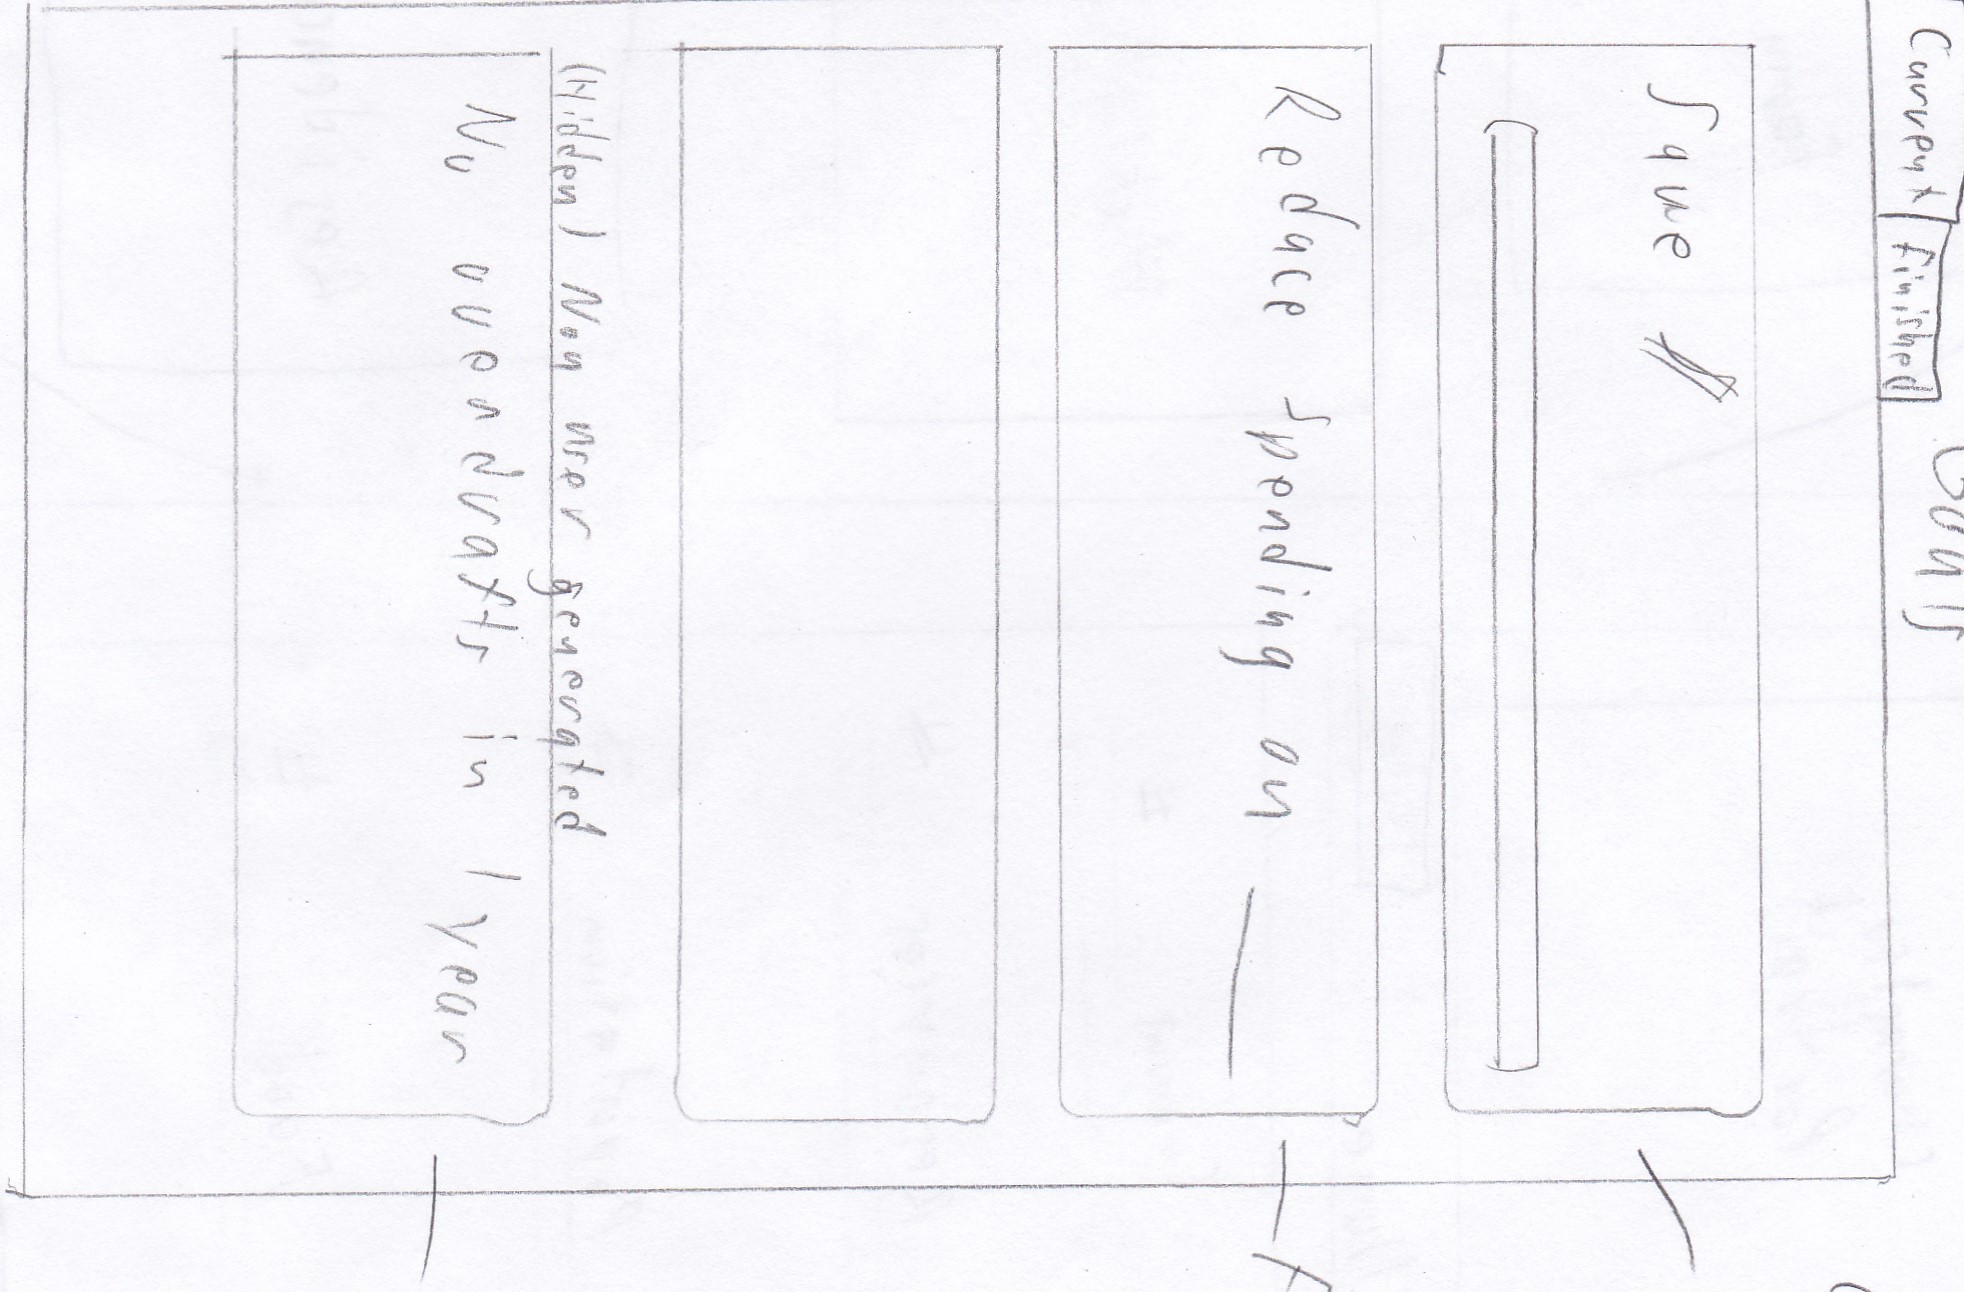 Goals
Current
finished
Save $
Reduce spending on ____
F
(Hidden) Non user generated
No overdrafts in 1 year